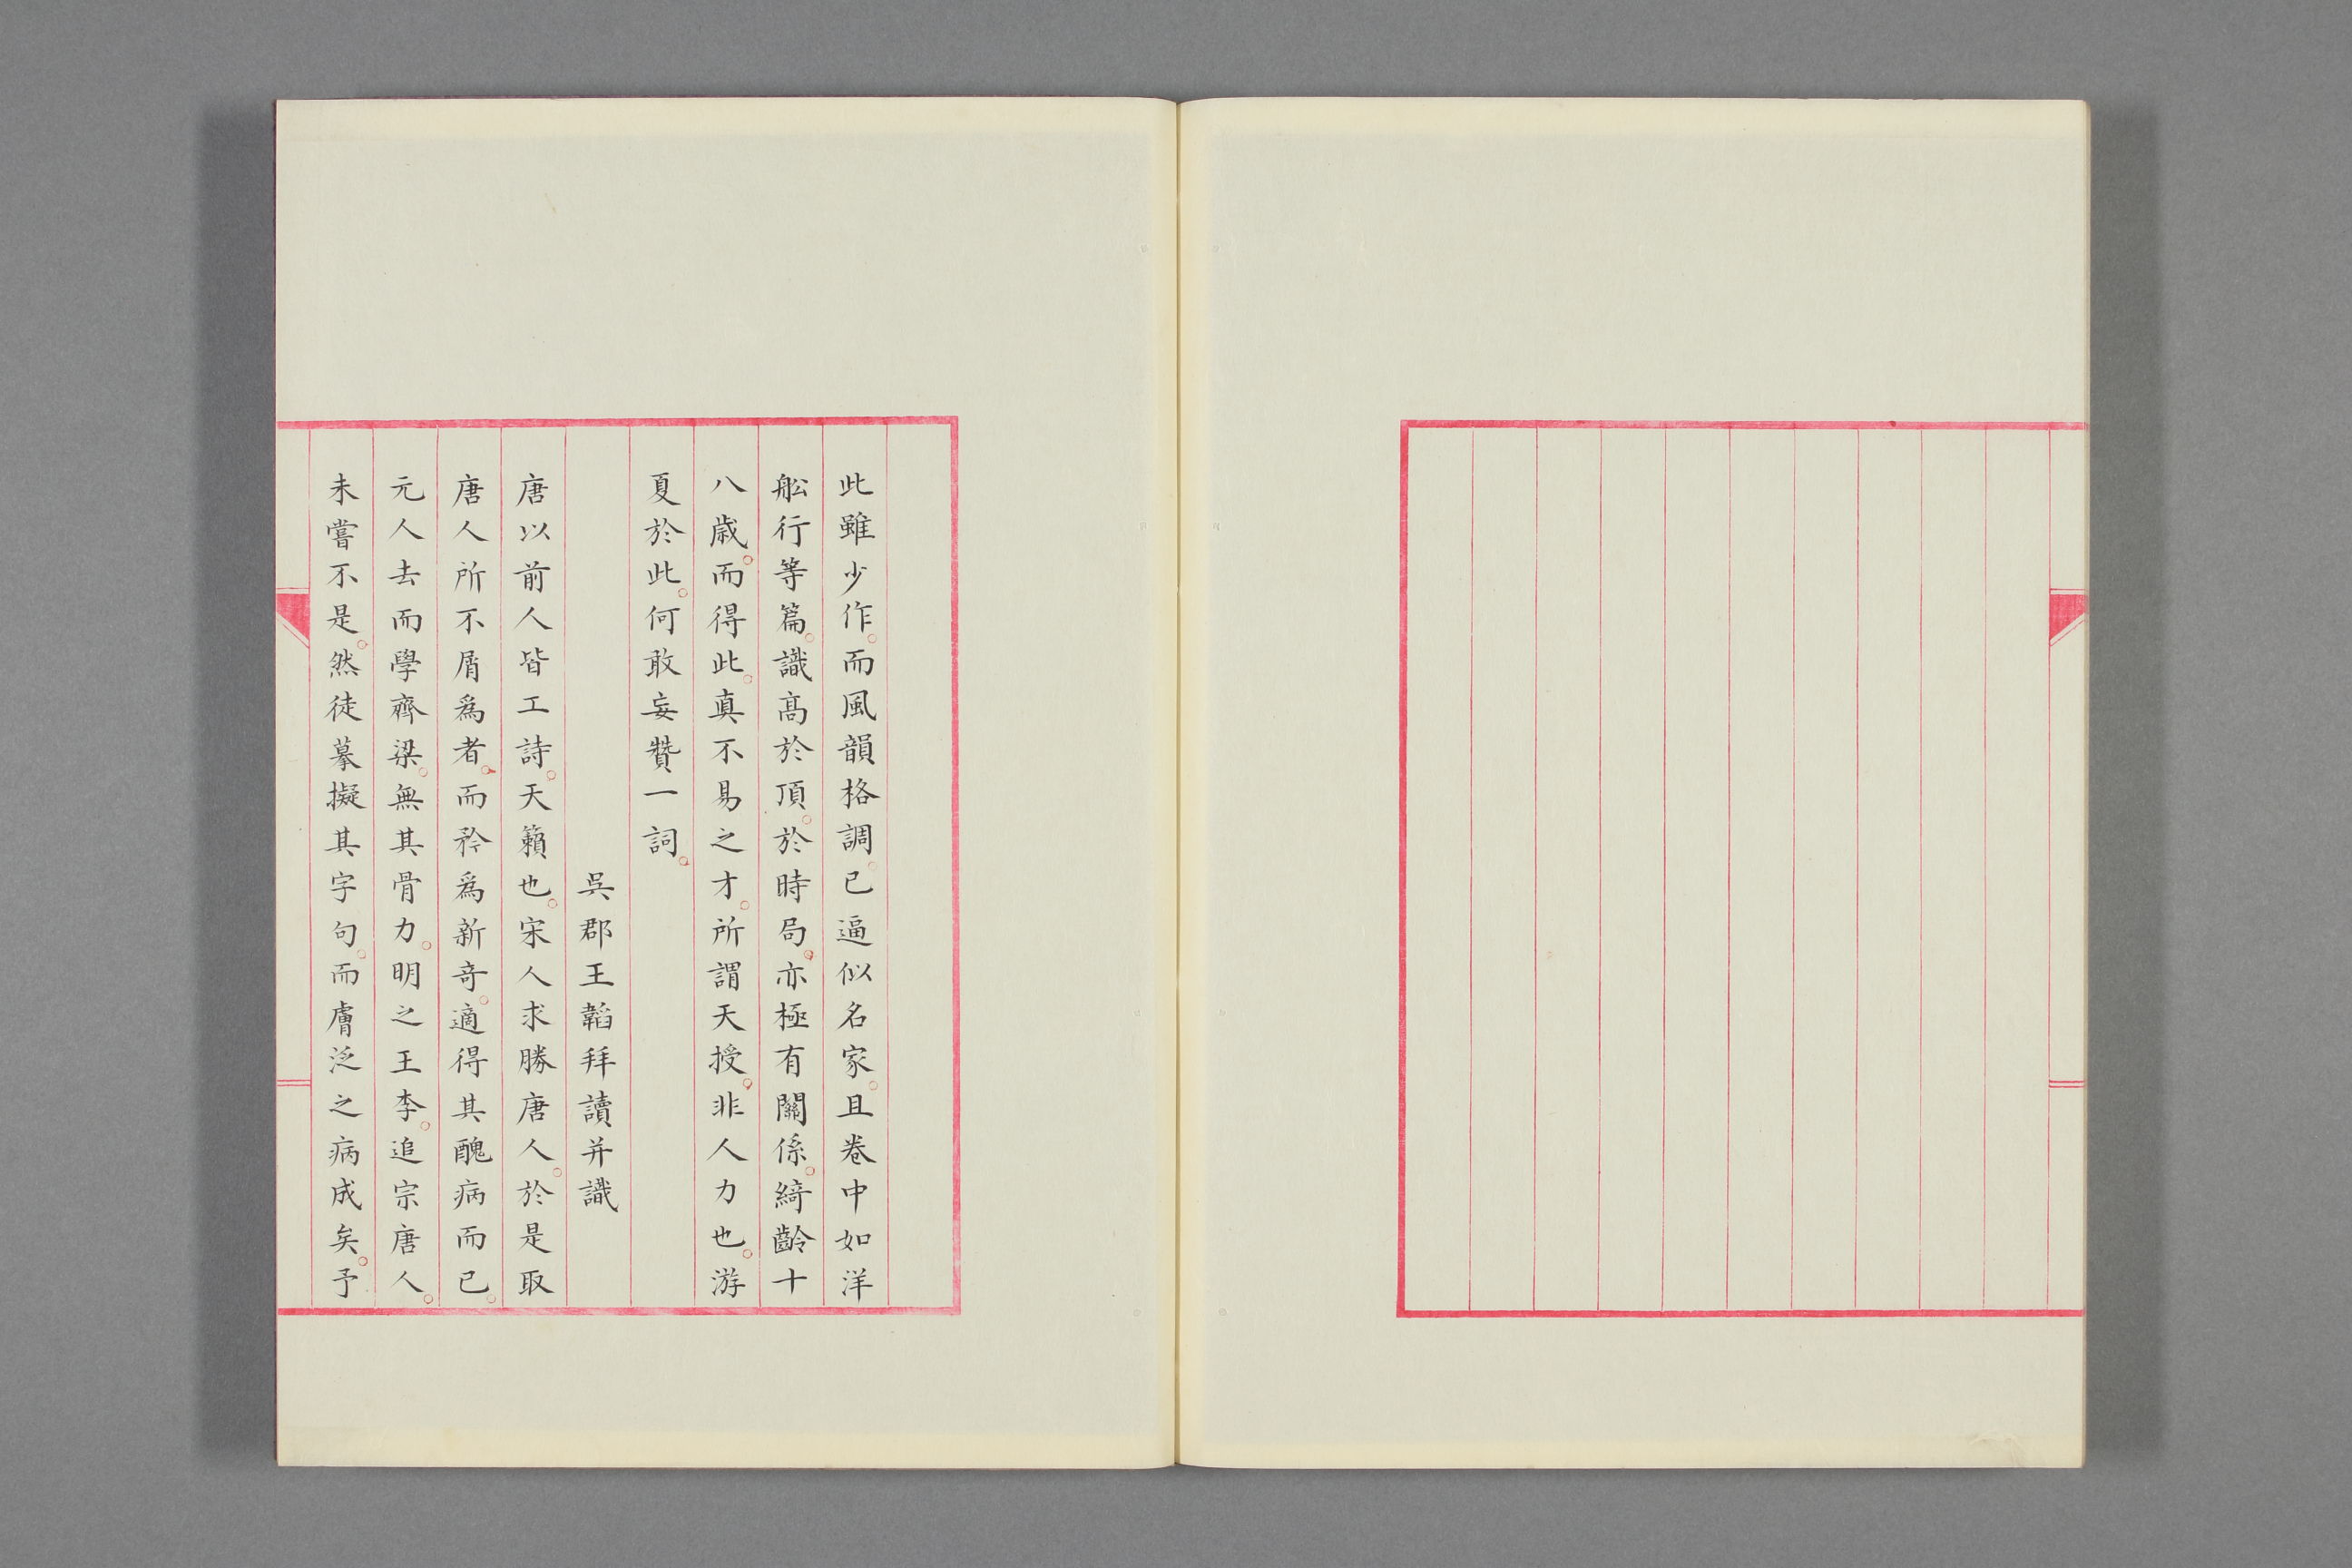 此雖少作。而風韻格調。已逼似名家。且卷中如洋
舩行等篇。識高於頂。於時局。亦極有關係。綺齡十
八歳。而得此。真不易之才。所謂天授。非人力也。游
夏於此。何敢妄贊一詞。
吳郡王韜拜讀并識
唐以前人皆工詩。天籟也。宋人求勝唐人。於是取
唐人所不屑爲者。而矜爲新奇。適得其醜病而已。
元人去而學齊梁。無其骨力。明之王李。追宗唐人。
未嘗不是。然徒摹擬其字句。而膚泛之病成矣。予